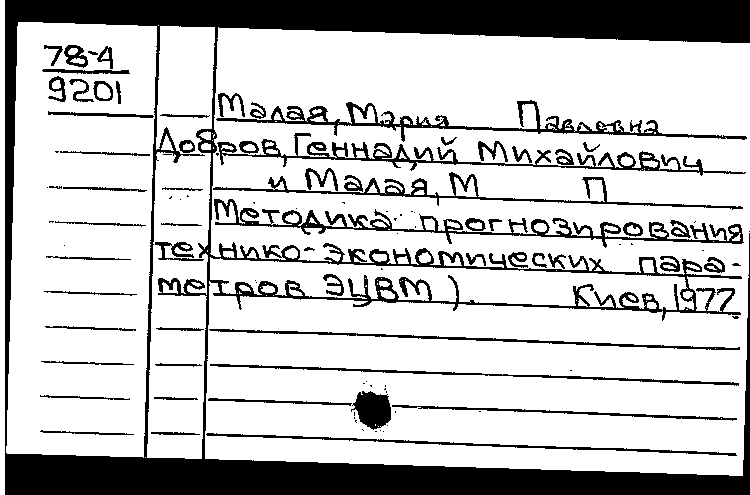 78-4
9201
Малая, Мария Павловна
Добров, Геннадий Михайлович
и Малая, М П
Методика прогнозирования
технико-экономических пара-
метров ЭЦВМ). Киев, 1977.